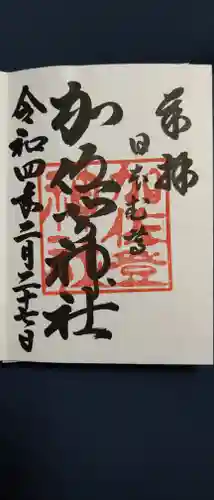 奉拝
日本武尊
加佐登神社
令和四年二月二十七日